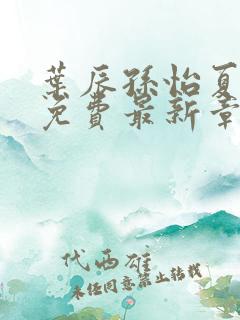 葉辰孫怡夏
免費最新章
代西雄
未经同意禁止转载